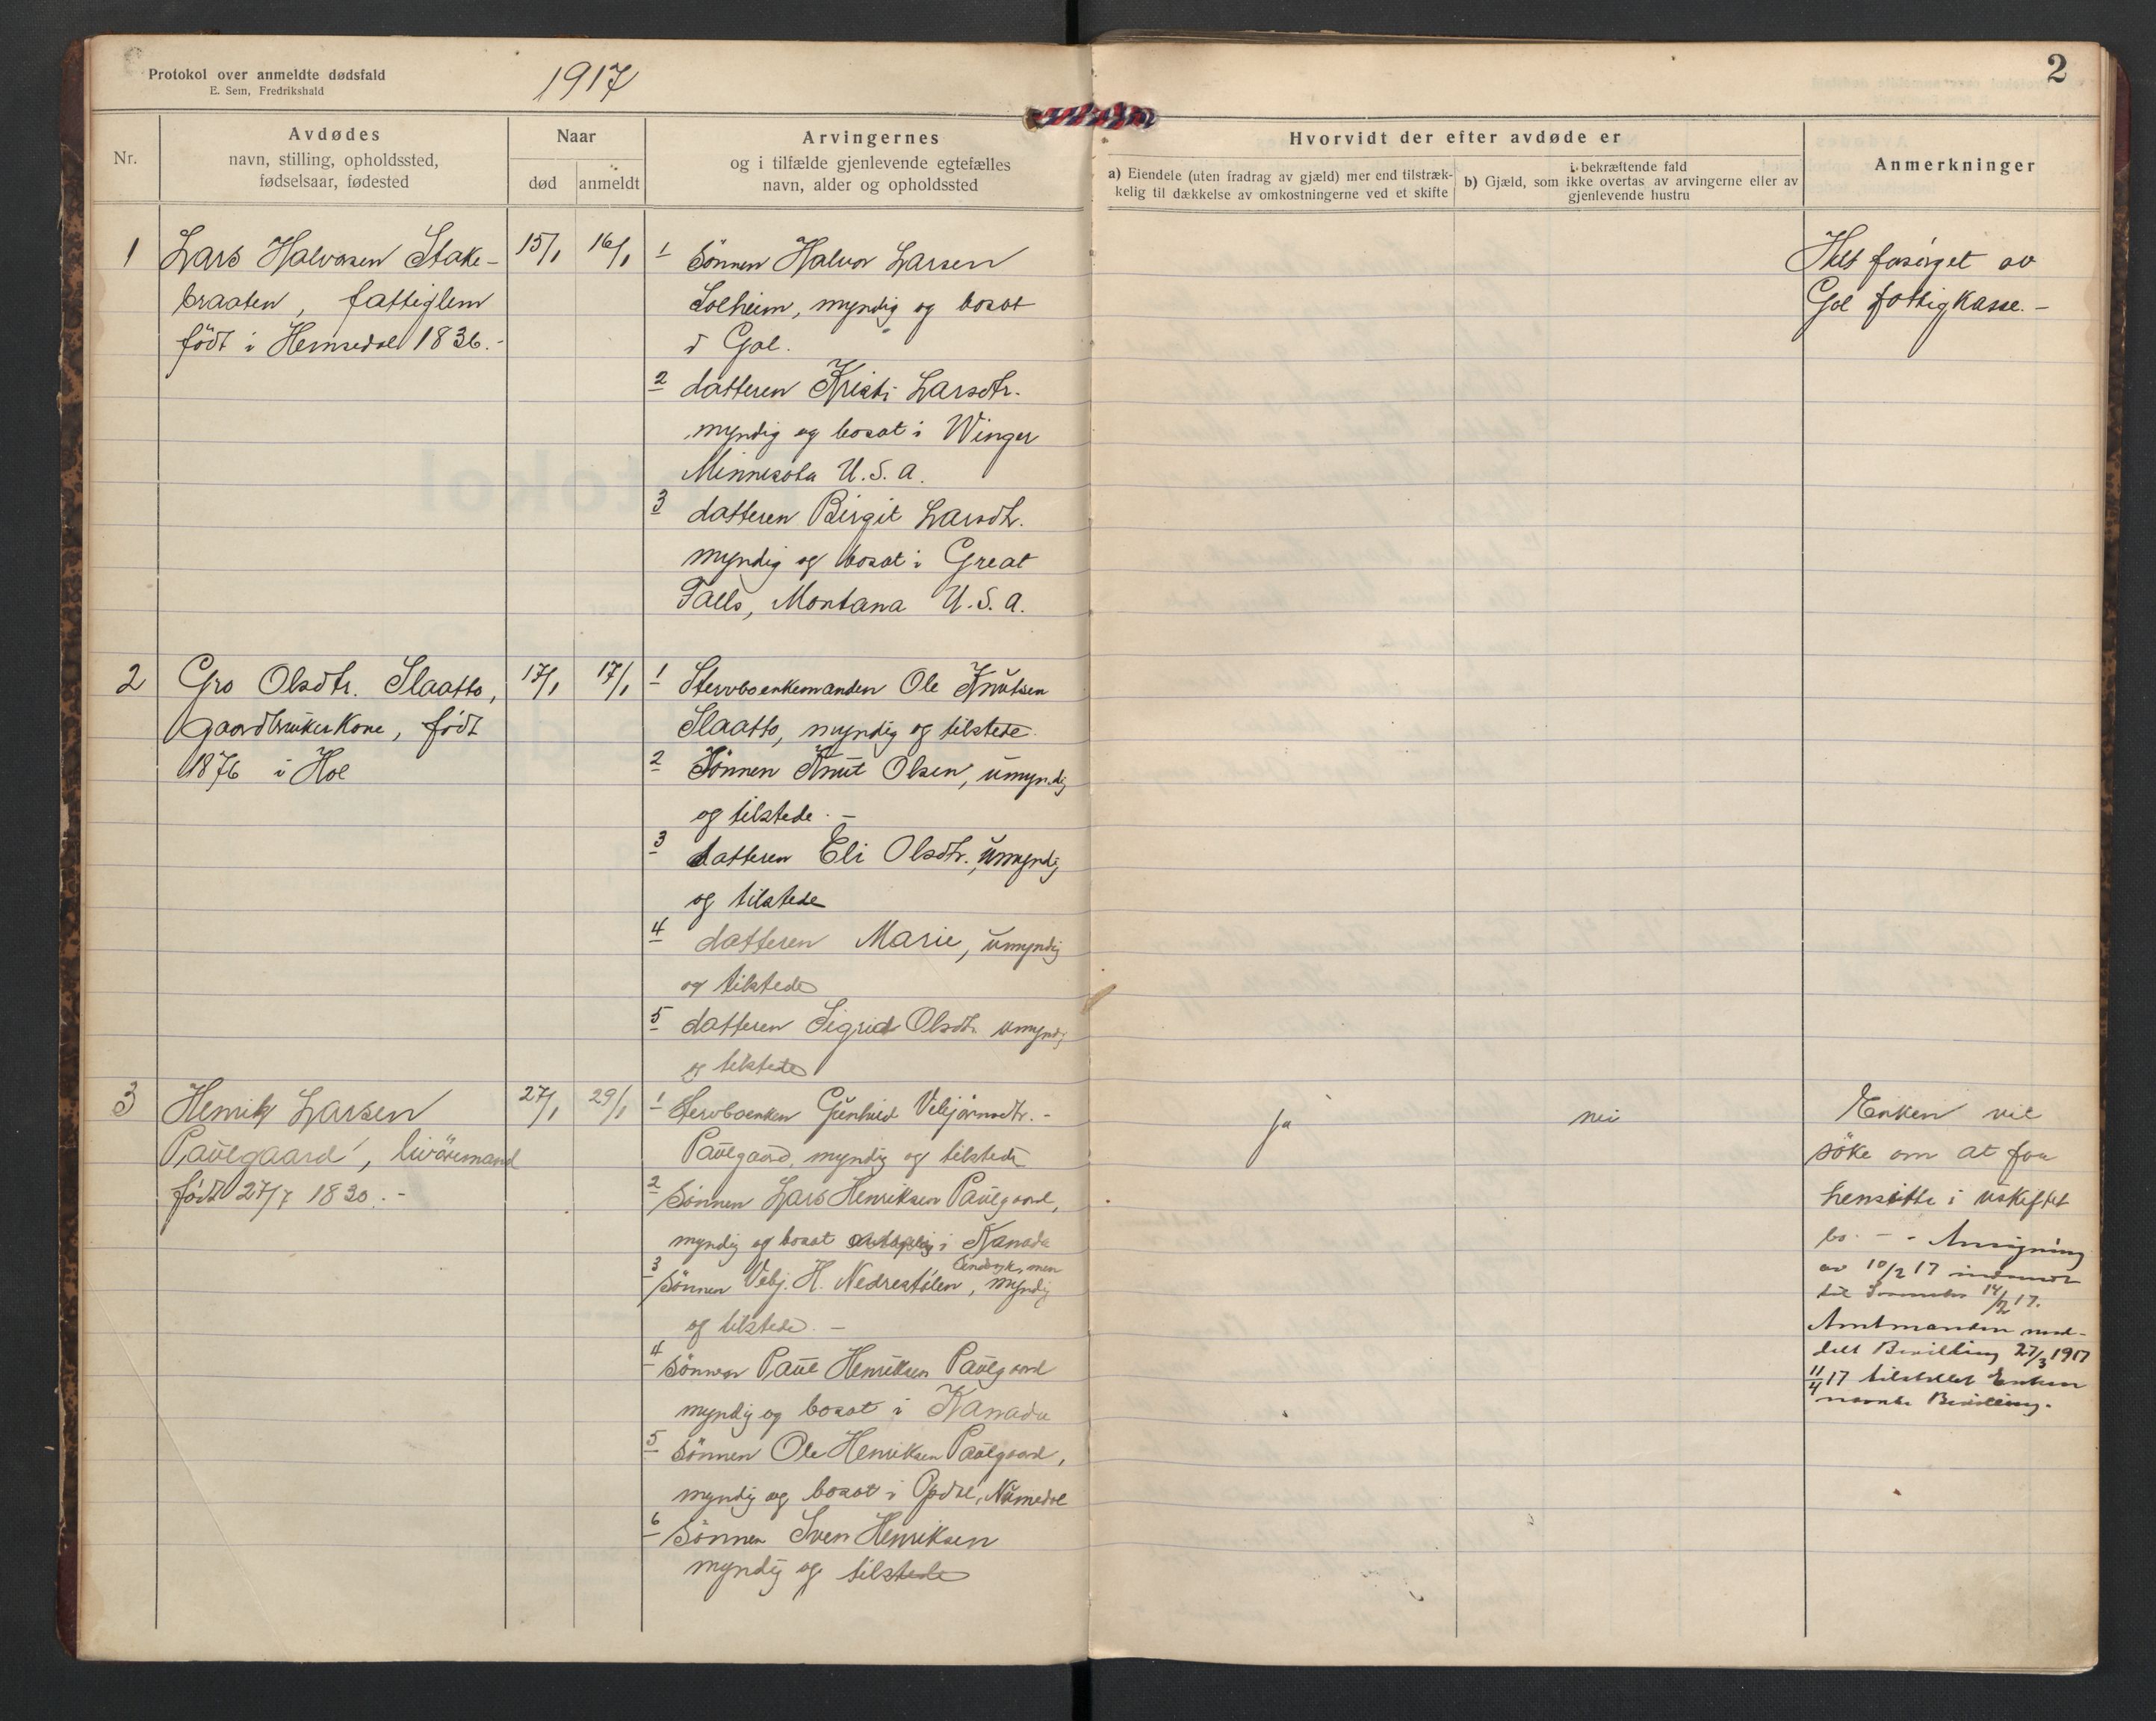 Protokol over anmeldte dødsfald
E. Sem, Fredrikshald
1917
2
Nr.
Avdødes
navn, stilling, opholdssted,
fødselsaar, fødested
Naar
død
anmeldt
Arvingernes
og i tilfælde gjenlevende egtefælles
navn, alder og opholdssted
Hvorvidt der efter avdøde er
a) Eiendele (uten fradrag av gjæld) mer end tilstræk-
kelig til dækkelse av omkostningerne ved et skifte
i bekræftende fald
b) Gjæld, som ikke overtas av arvingerne eller av
gjenlevende hustru
Anmerkninger
1
Lars Halvorsen Stake-
braaten, fattiglem
født i Hemsedal 1836.-
15/1
16/1
1 Sönnen Halvor Larsen
Solheim, myndig og bosat
i Gol.
2 datteren Kristi Larsdtr.
myndig og bosat i Winger
Minnesota U.S.A.
3 datteren Birgit Larsdtr.
myndig og bosat i Great
Falls, Montana U.S.A.
Helt forsörget av
Gol fattigkasse.-
2
Gro Olsdtr. Slaatto,
gaardbrukerkone, födt
1876 i Hol
17/1
17/1
1 Stervboenkemanden Ole Knutsen
Slaatto, myndig og tilstede.
2 Sönnen Knut Olsen, umyndig
og tilstede.-
3 datteren Eli Olsdtr. umyndig
og tilstede
4 datteren Marie, umyndig
og tilstede
5 datteren Sigrid Olsdtr umyndig
og tilstede
3
Henrik Larsen
Paulgaard, livöremand
födt 27/7 1830.-
27/1
29/1
1 Stervboenken Gunhild Vebjörnsdtr.-
Paulgaard, myndig og tilstede
2 Sönnen Lars Henriksen Paulgaard,
myndig og bosat i Kanada
3 Sönnen Vebj. H. Nedrestölen, myndig
og tilstede.-
4 Sönnen Paul Henriksen Paulgaard
myndig og bosat i Kanada
5 Sönnen Ole Henriksen Paulgaard,
myndig og bosat i Opdal, Numedal
6 Sönnen Sven Henriksen
myndig og tilstede
ja
nei
Enken vil
söke om at faa
hensitte i uskiftet
bo. - - Ansøgning
av 10/2 17 indsendt
til 14/2 17.
Amtmanden med-
delt Bevilling 27/3 1917
11/4 17 tilstillet Enken
nævnte Bevilling.